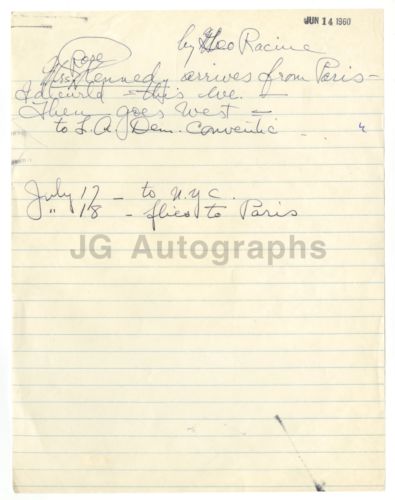 JUN 14 1960
by Geo Racine
Rose
Mrs Kennedy arrives from Paris -
Idlewild - this eve. -
Then goes West -
to L.A. Dem. Conventio
July 17 - to N.Y.C.
" 18 - flies to Paris
JG Autographs